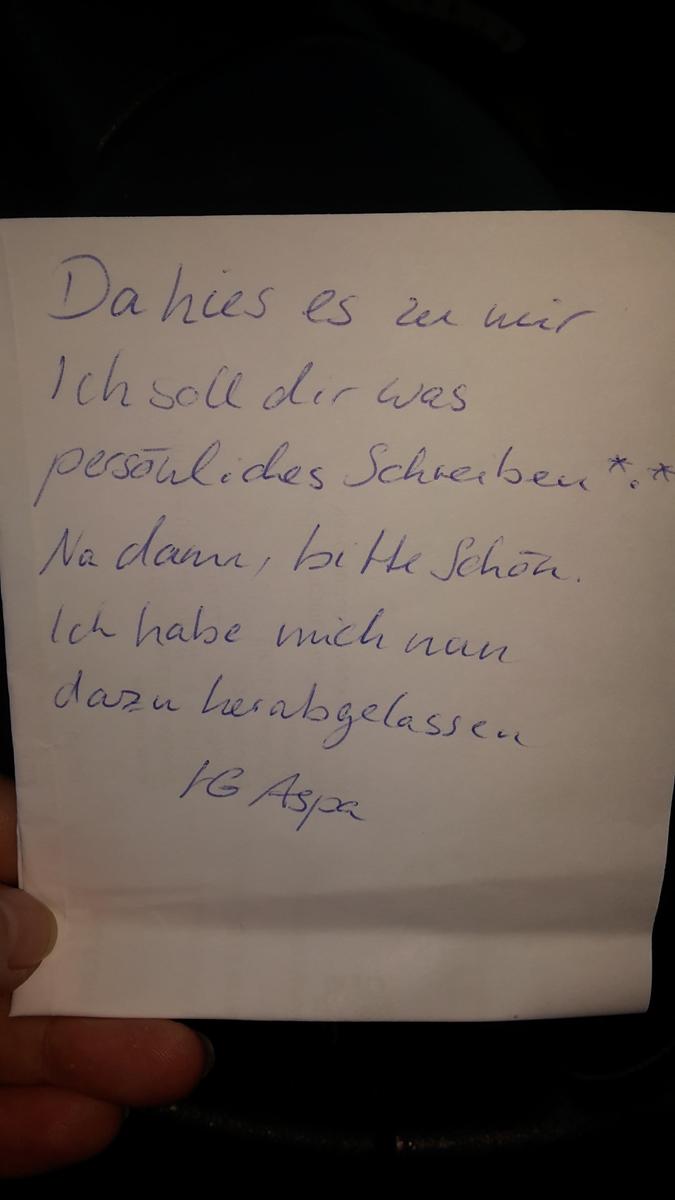 Da hies es zu mir
Ich soll dir was
persönliches Schreiben *.*
Na dann, bitte Schön.
Ich habe mich nun
dazu herabgelassen
LG Aspa